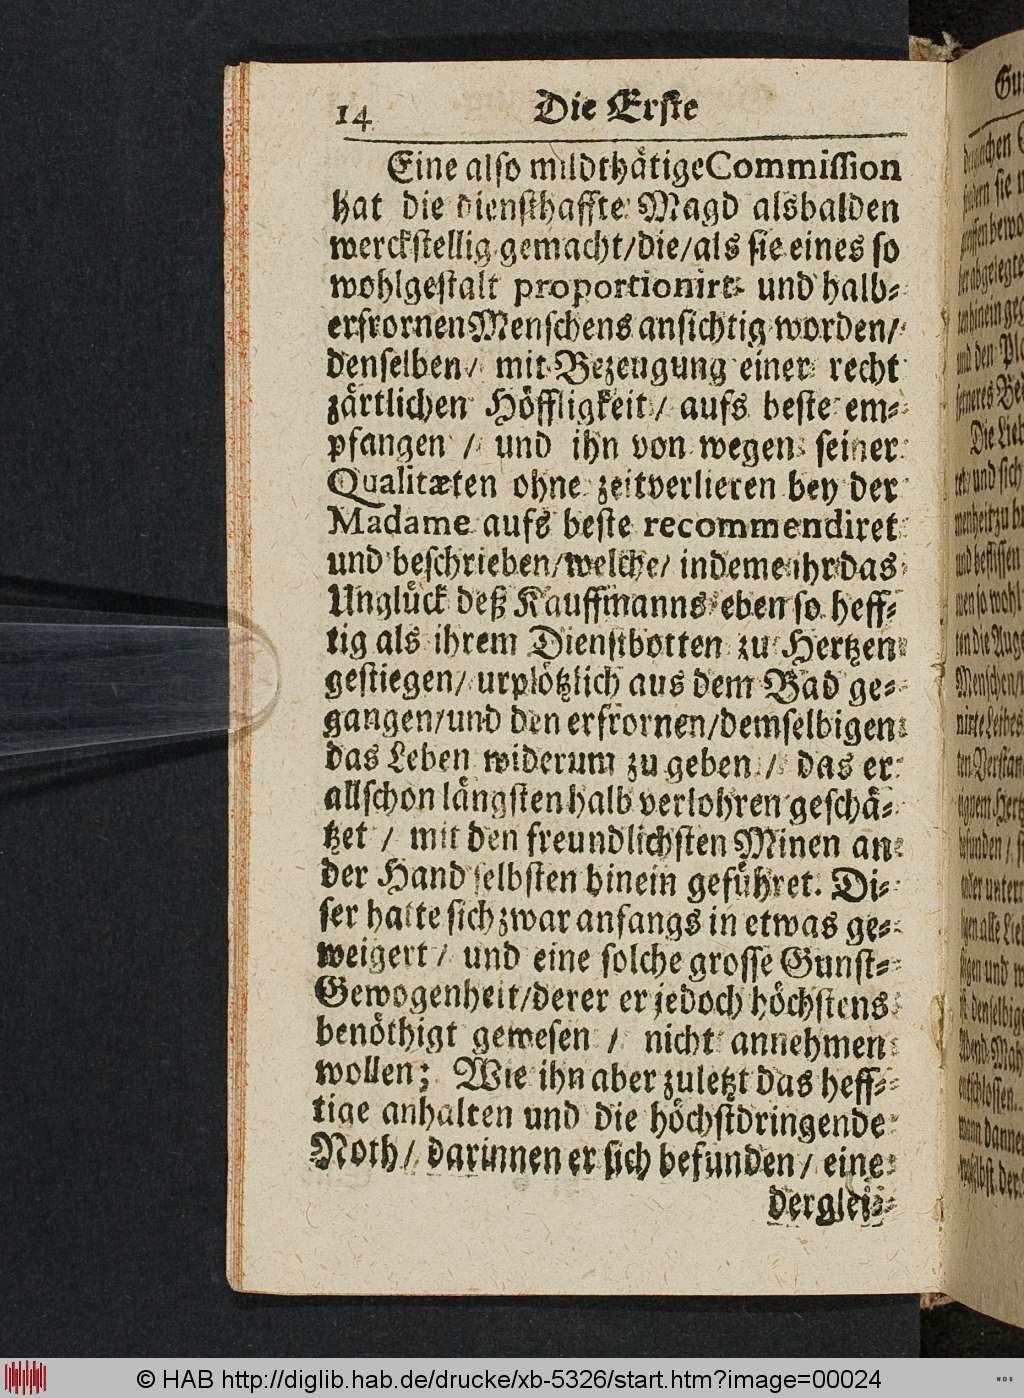 14 Die Erste
Eine also mildthätige Commission
hat die diensthaffte Magd alsbalden
werckstellig gemacht/die/als sie eines so
wohlgestalt proportionirt- und halb-
erfrornen Menschens ansichtig worden/
denselben/ mit Bezeugung einer recht
zärtlichen Höffligkeit/ aufs beste em-
pfangen / und ihn von wegen seiner
Qualitæten ohne zeitverlieren bey der
Madame aufs beste recommendiret
und beschrieben/welche/ indeme ihr das
Unglück deß Kauffmanns eben so heff-
tig als ihrem Dienstbotten zu Hertzen
gestiegen/ urplötzlich aus dem Bad ge-
gangen/und den erfrornen/demselbigen
das Leben widerum zu geben / das er
allschon längsten halb verlohren geschä-
tzet / mit den freundlichsten Minen an
der Hand selbsten hinein geführet. Di-
ser hatte sich zwar anfangs in etwas ge-
weigert / und eine solche grosse Gunst-
Gewogenheit/derer er jedoch höchstens
benöthigt gewesen / nicht annehmen
wollen; Wie ihn aber zuletzt das heff-
tige anhalten und die höchstdringende
Noth/ darinnen er sich befunden/ eine
derglei-
Die Lieb
© HAB http://diglib.hab.de/drucke/xb-5326/start.htm?image=00024